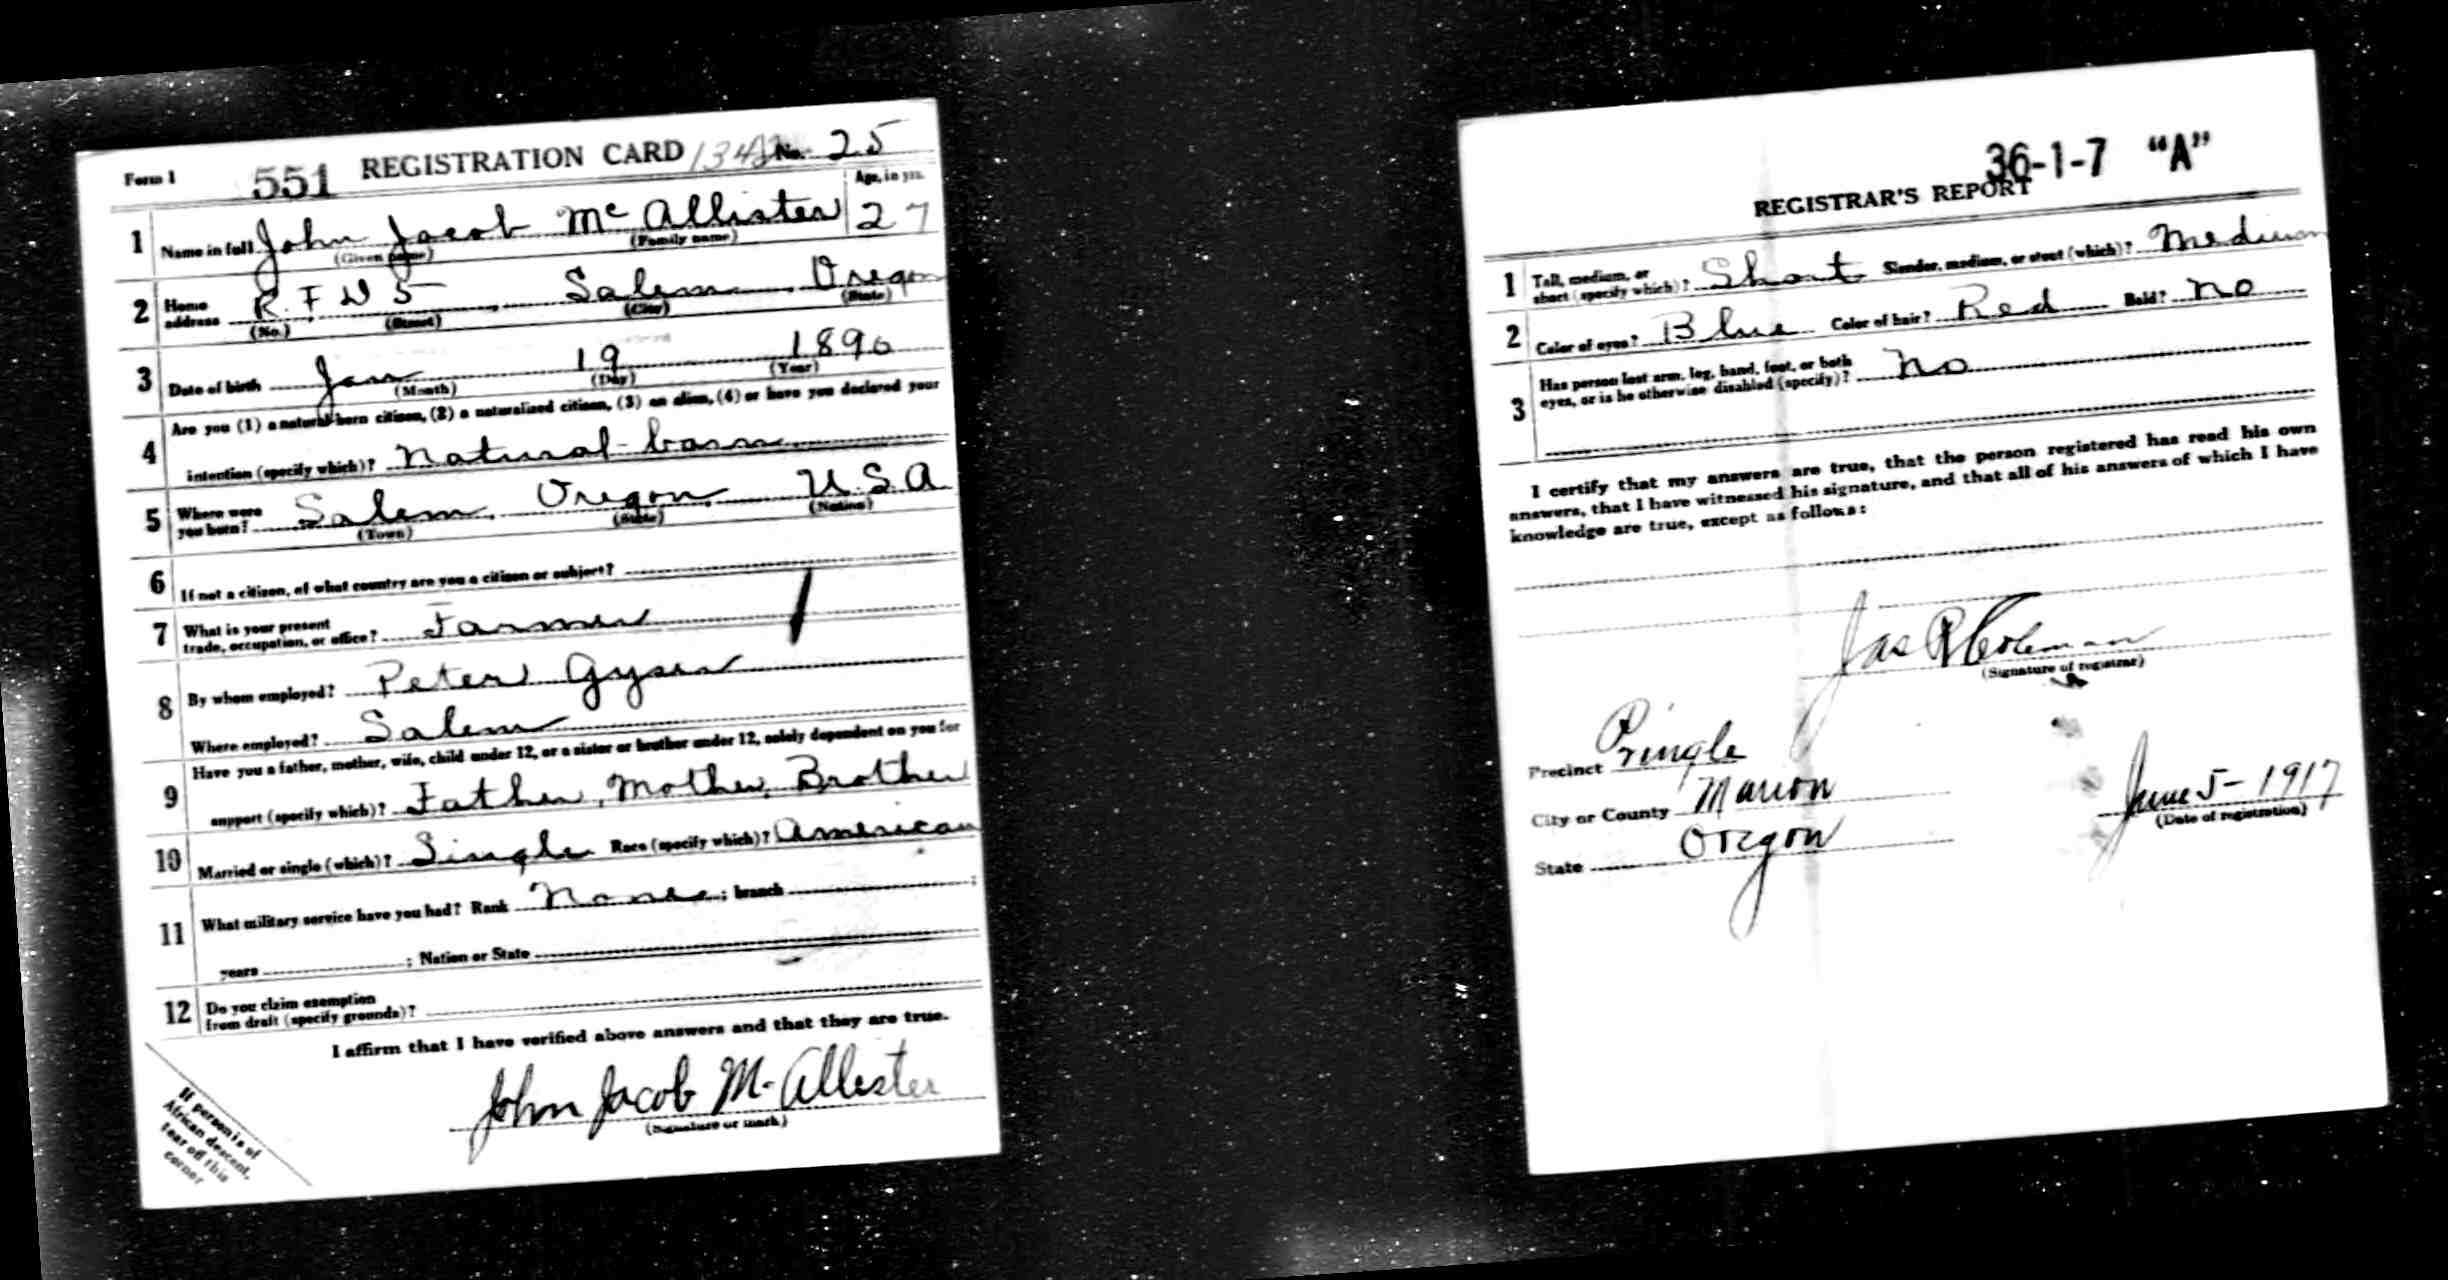 Form 1 551 REGISTRATION CARD 1342 No. 25
Age, in yrs.
1 Name in full John Jacob McAllister 27
(Given name) (Family name)
2 Home address R. F D 5 Salem Oregon
(No.) (Street) (City) (State)
3 Date of birth Jan 19 1890
(Month) (Day) (Year)
4 Are you (1) a natural-born citizen, (2) a naturalized citizen, (3) an alien, (4) or have you declared your
intention (specify which)? Natural-born
5 Where were you born? Salem, Oregon, U.S.A
(Town) (State) (Nation)
6 If not a citizen, of what country are you a citizen or subject?
7 What is your present
trade, occupation, or office? Farmer
8 By whom employed? Peter Gyser
Where employed? Salem
9 Have you a father, mother, wife, child under 12, or a sister or brother under 12, solely dependent on you for
support (specify which)? Father, Mother, Brother
10 Married or single (which)? Single Race (specify which)? American
11 What military service have you had? Rank None ; branch ;
years ; Nation or State
12 Do you claim exemption
from draft (specify grounds)?
I affirm that I have verified above answers and that they are true.
John Jacob McAllister
(Signature or mark)
If person is of
African descent,
tear off this
corner
36-1-7 "A"
REGISTRAR'S REPORT
1 Tall, medium, or
short (specify which)? Short Slender, medium, or stout (which)? Medium
2 Color of eyes? Blue Color of hair? Red Bald? No
3 Has person lost arm, leg, hand, foot, or both
eyes, or is he otherwise disabled (specify)? No
I certify that my answers are true, that the person registered has read his own
answers, that I have witnessed his signature, and that all of his answers of which I have
knowledge are true, except as follows:
Jas R Coleman
(Signature of registrar)
Precinct Pringle
City or County Marion
State Oregon
June 5-1917
(Date of registration)